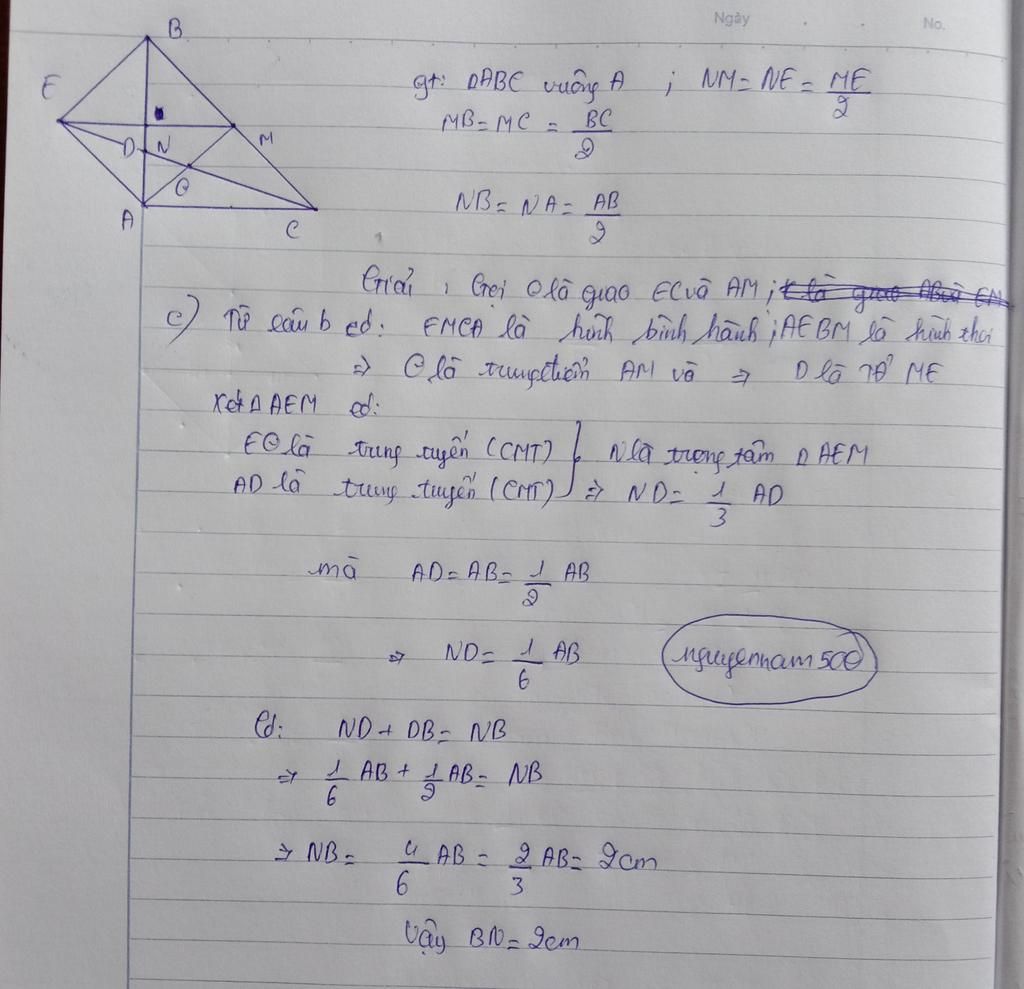 Ngày . . No.
B
E
M
D N
O
A
C
gt: ΔABC vuông A ; NM = NE = ME/2
MB = MC = BC/2
NB = NA = AB/2
Giải, Gọi O là giao EC và AM;
c) Từ câu b có: EMCA là hình bình hành; AEBM là hình thoi
⇒ O là trung điểm AM và ⇒ D là TĐ ME
Xét ΔAEM có:
EO là trung tuyến (CMT) } N là trọng tâm ΔAEM
AD là trung tuyến (CMT) ⇒ ND = 1/3 AD
mà AD = AB = 1/2 AB
⇒ ND = 1/6 AB
nguyennam500
Có: ND + DB = NB
⇒ 1/6 AB + 1/2 AB = NB
⇒ NB = 4/6 AB = 2/3 AB = 2cm
Vậy BN = 2cm